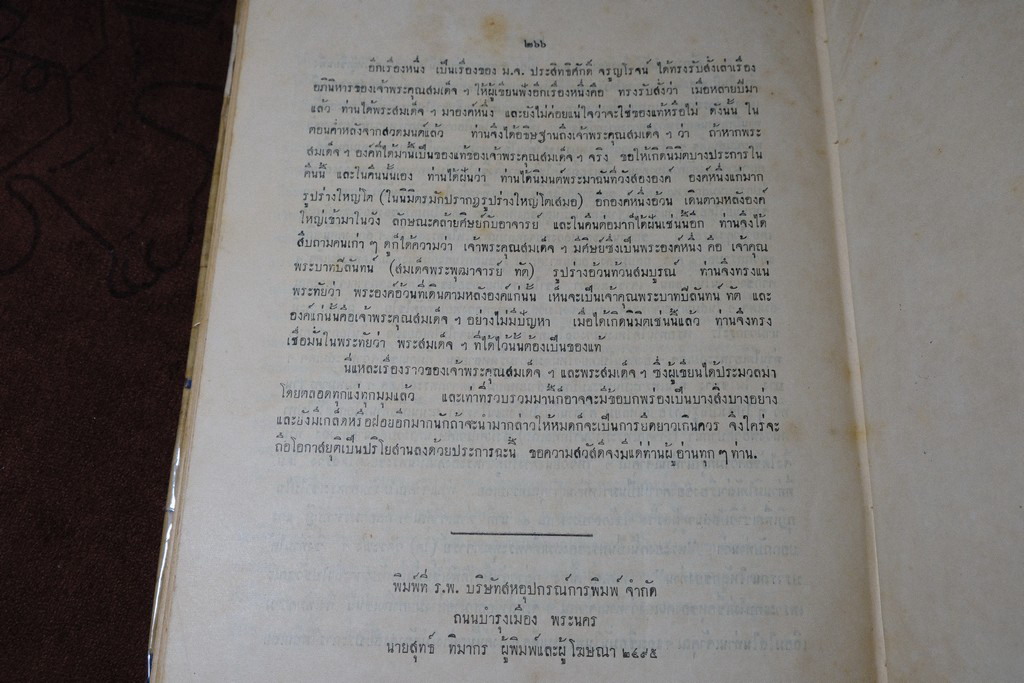 ๒๖๖
อีกเรื่องหนึ่ง เป็นเรื่องของ ม.จ. ประสิทธิศักดิ์ จรูญโรจน์ ได้ทรงรับสั่งเล่าเรื่อง
อภินิหารของเจ้าพระคุณสมเด็จ ฯ ให้ผู้เขียนฟังอีกเรื่องหนึ่งคือ ทรงรับสั่งว่า เมื่อหลายปีมา
แล้ว ท่านได้พระสมเด็จ ฯ มาองค์หนึ่ง และยังไม่ค่อยแน่ใจว่าจะใช่ของแท้หรือไม่ ดังนั้น ใน
ตอนค่ำหลังจากสวดมนต์แล้ว ท่านจึงได้อธิษฐานถึงเจ้าพระคุณสมเด็จ ฯ ว่า ถ้าหากพระ
สมเด็จ ฯ องค์ที่ได้มานี้เป็นของแท้ของเจ้าพระคุณสมเด็จ ฯ จริง ขอให้เกิดนิมิตบางประการใน
คืนนี้ และในคืนนั้นเอง ท่านได้ฝันว่า ท่านได้นิมนต์พระมาฉันที่วังสององค์ องค์หนึ่งแก่มาก
รูปร่างใหญ่โต (ในนิมิตรมักปรากฏรูปร่างใหญ่โตเสมอ) อีกองค์หนึ่งอ้วน เดินตามหลังองค์
ใหญ่เข้ามาในวัง ลักษณะคล้ายศิษย์กับอาจารย์ และในคืนต่อมาก็ได้ฝันเช่นนี้อีก ท่านจึงได้
สืบถามคนเก่า ๆ ดูก็ได้ความว่า เจ้าพระคุณสมเด็จ ฯ มีศิษย์ซึ่งเป็นพระองค์หนึ่ง คือ เจ้าคุณ
พระบาทปีลันทน์ (สมเด็จพระพุฒาจารย์ ทัด) รูปร่างอ้วนท้วนสมบูรณ์ ท่านจึงทรงแน่
พระทัยว่า พระองค์อ้วนที่เดินตามหลังองค์แก่นั้น เห็นจะเป็นเจ้าคุณพระบาทปีลันทน์ ทัด และ
องค์แก่นั้นคือเจ้าพระคุณสมเด็จ ฯ อย่างไม่มีปัญหา เมื่อได้เกิดนิมิตเช่นนี้แล้ว ท่านจึงทรง
เชื่อมั่นในพระทัยว่า พระสมเด็จ ฯ ที่ได้ไว้นั้นต้องเป็นของแท้
นี่แหละเรื่องราวของเจ้าพระคุณสมเด็จ ฯ และพระสมเด็จ ฯ ซึ่งผู้เขียนได้ประมวลมา
โดยตลอดทุกแง่ทุกมุมแล้ว และเท่าที่รวบรวมมานี้ก็อาจจะมีข้อบกพร่องเป็นบางสิ่งบางอย่าง
และยังมีเกล็ดหรือฝอยอีกมากนักถ้าจะนำมากล่าวให้หมดก็จะเป็นการยืดยาวเกินควร จึงใคร่จะ
ถือโอกาสยุติเป็นปริโยสานลงด้วยประการฉะนี้ ขอความสวัสดีจงมีแด่ท่านผู้อ่านทุก ๆ ท่าน.
พิมพ์ที่ ร.พ. บริษัทสหอุปกรณ์การพิมพ์ จำกัด
ถนนบำรุงเมือง พระนคร
นายสุทธ์ ทิมากร ผู้พิมพ์และผู้โฆษณา ๒๔๙๕